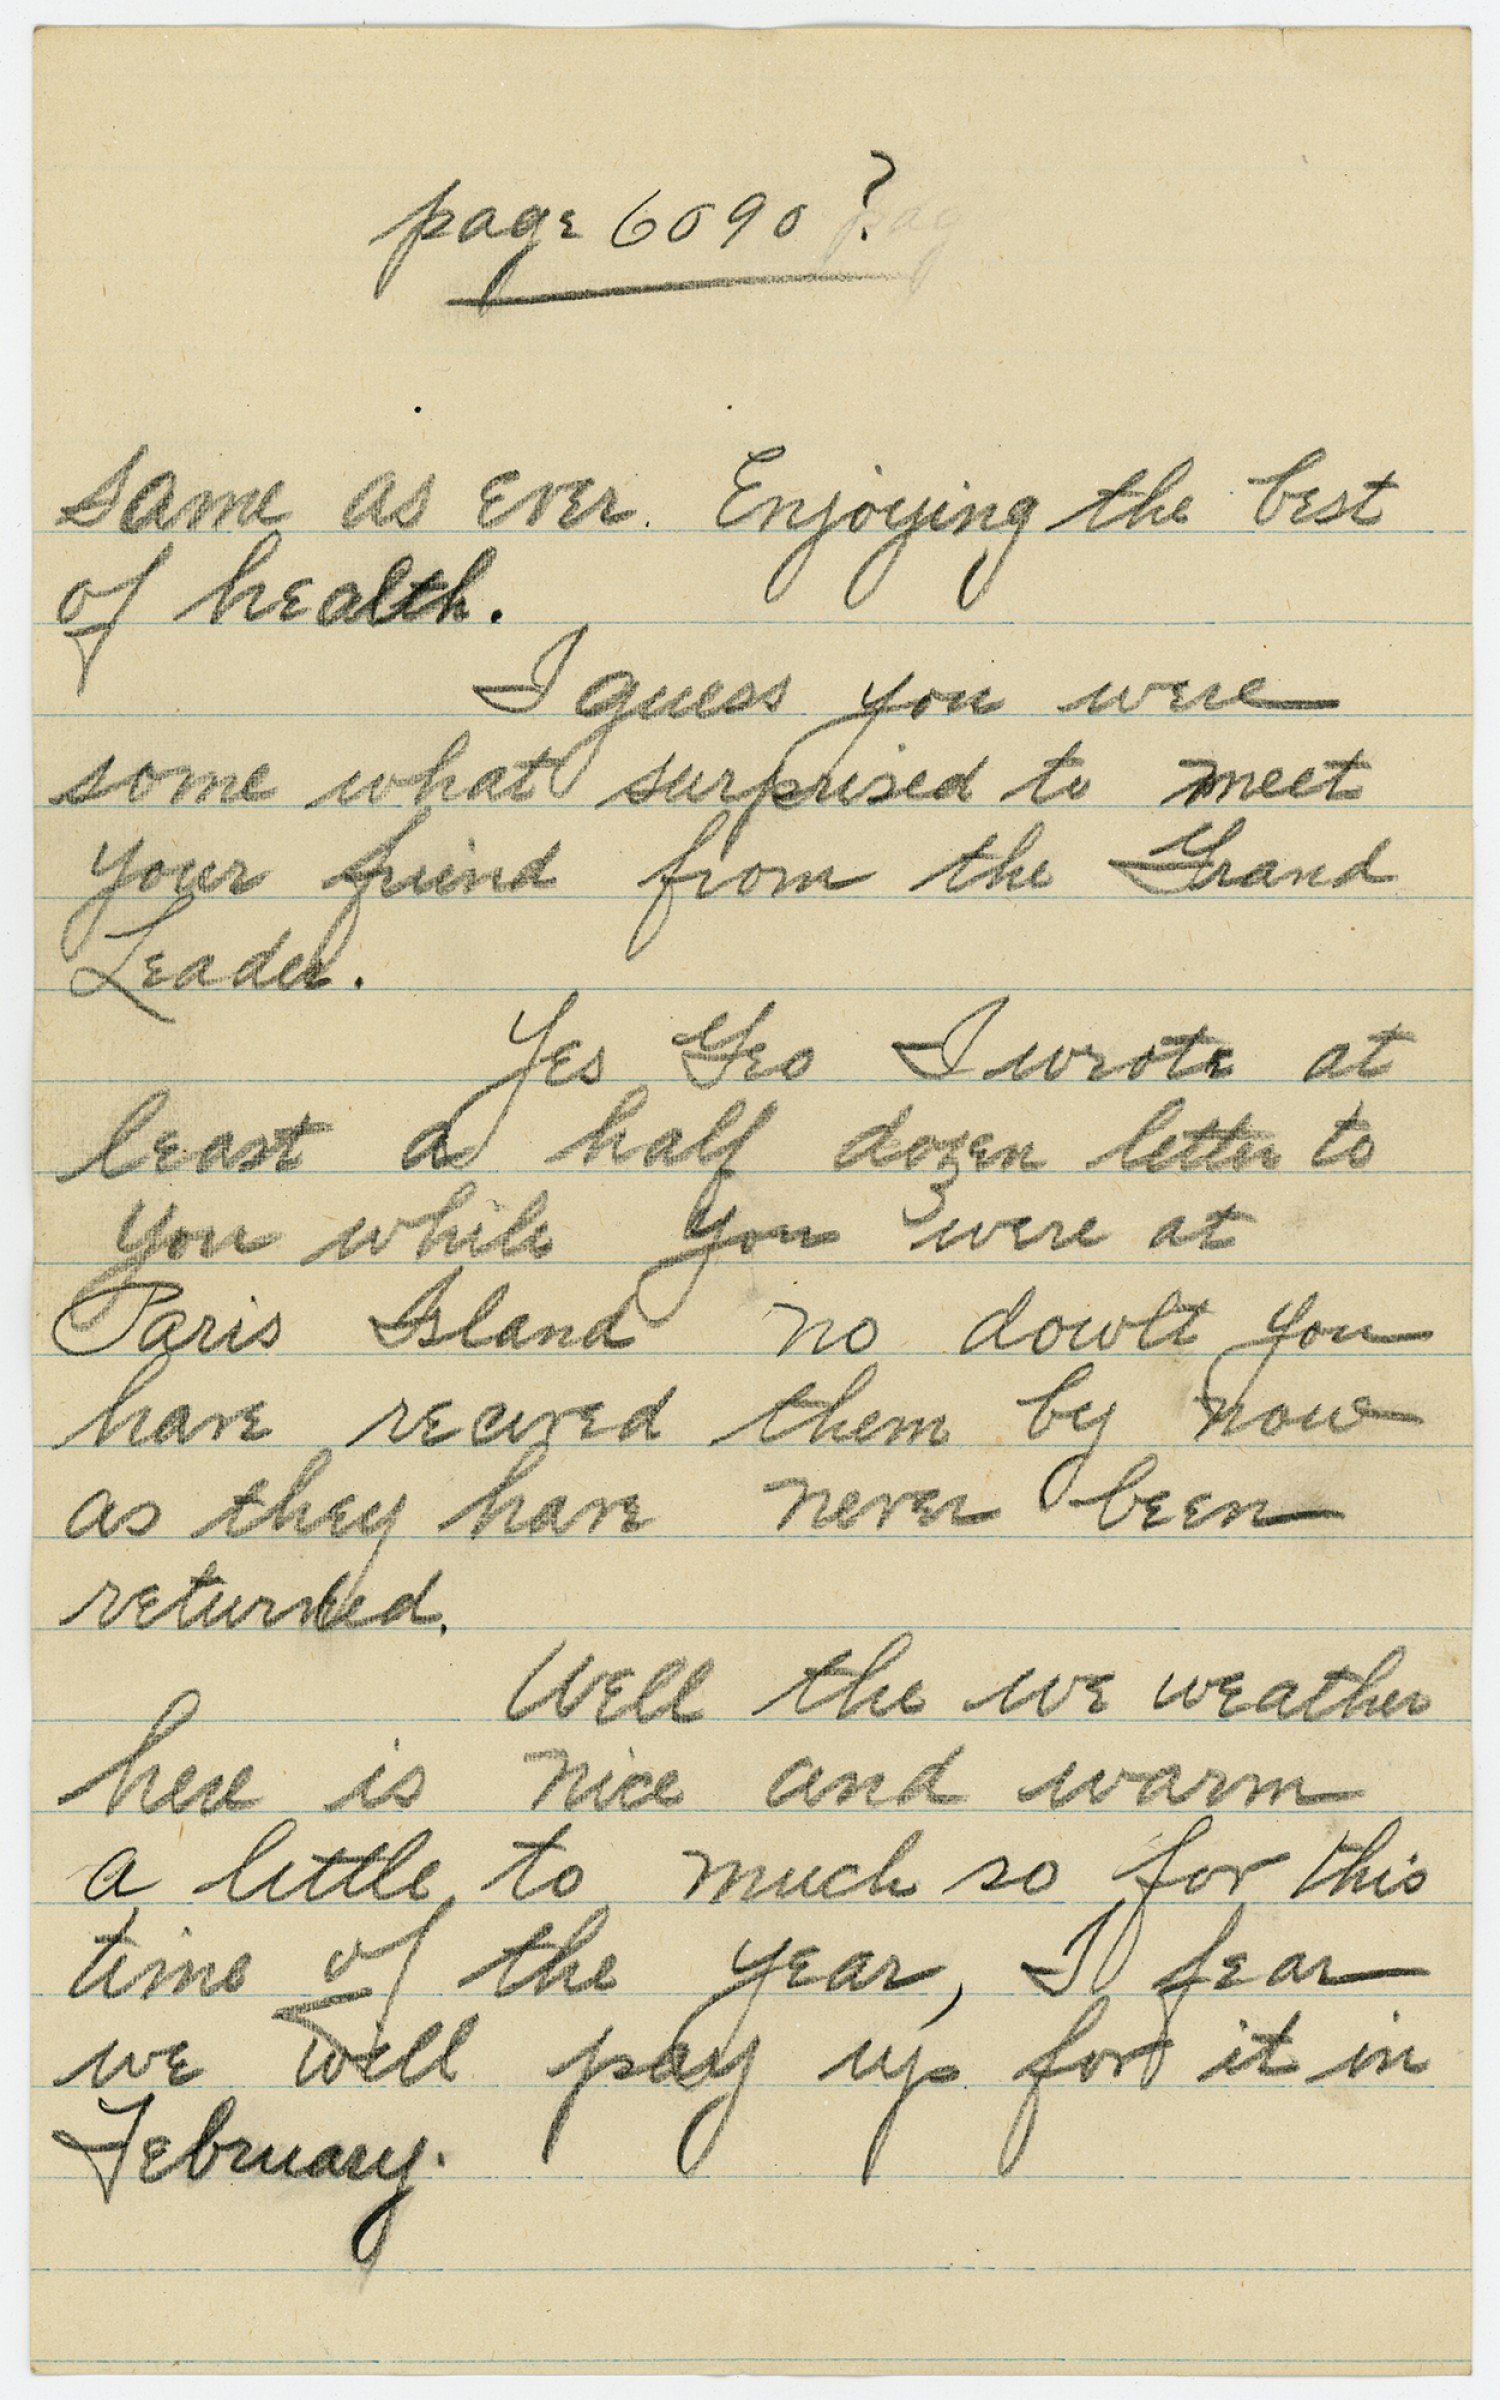 page 6090?
same as ever. Enjoying the best
of health.
I guess you were
some what surprised to meet
your friend from the Grand
Leader.
Yes Geo I wrote at
least a half dozen letter to
you while you were at
Paris Island no dowbt you
have recived them by now
as they have never been
returned.
Well the we weather
here is nice and warm
a little to much so for this
time of the year, I fear
we will pay up for it in
February.